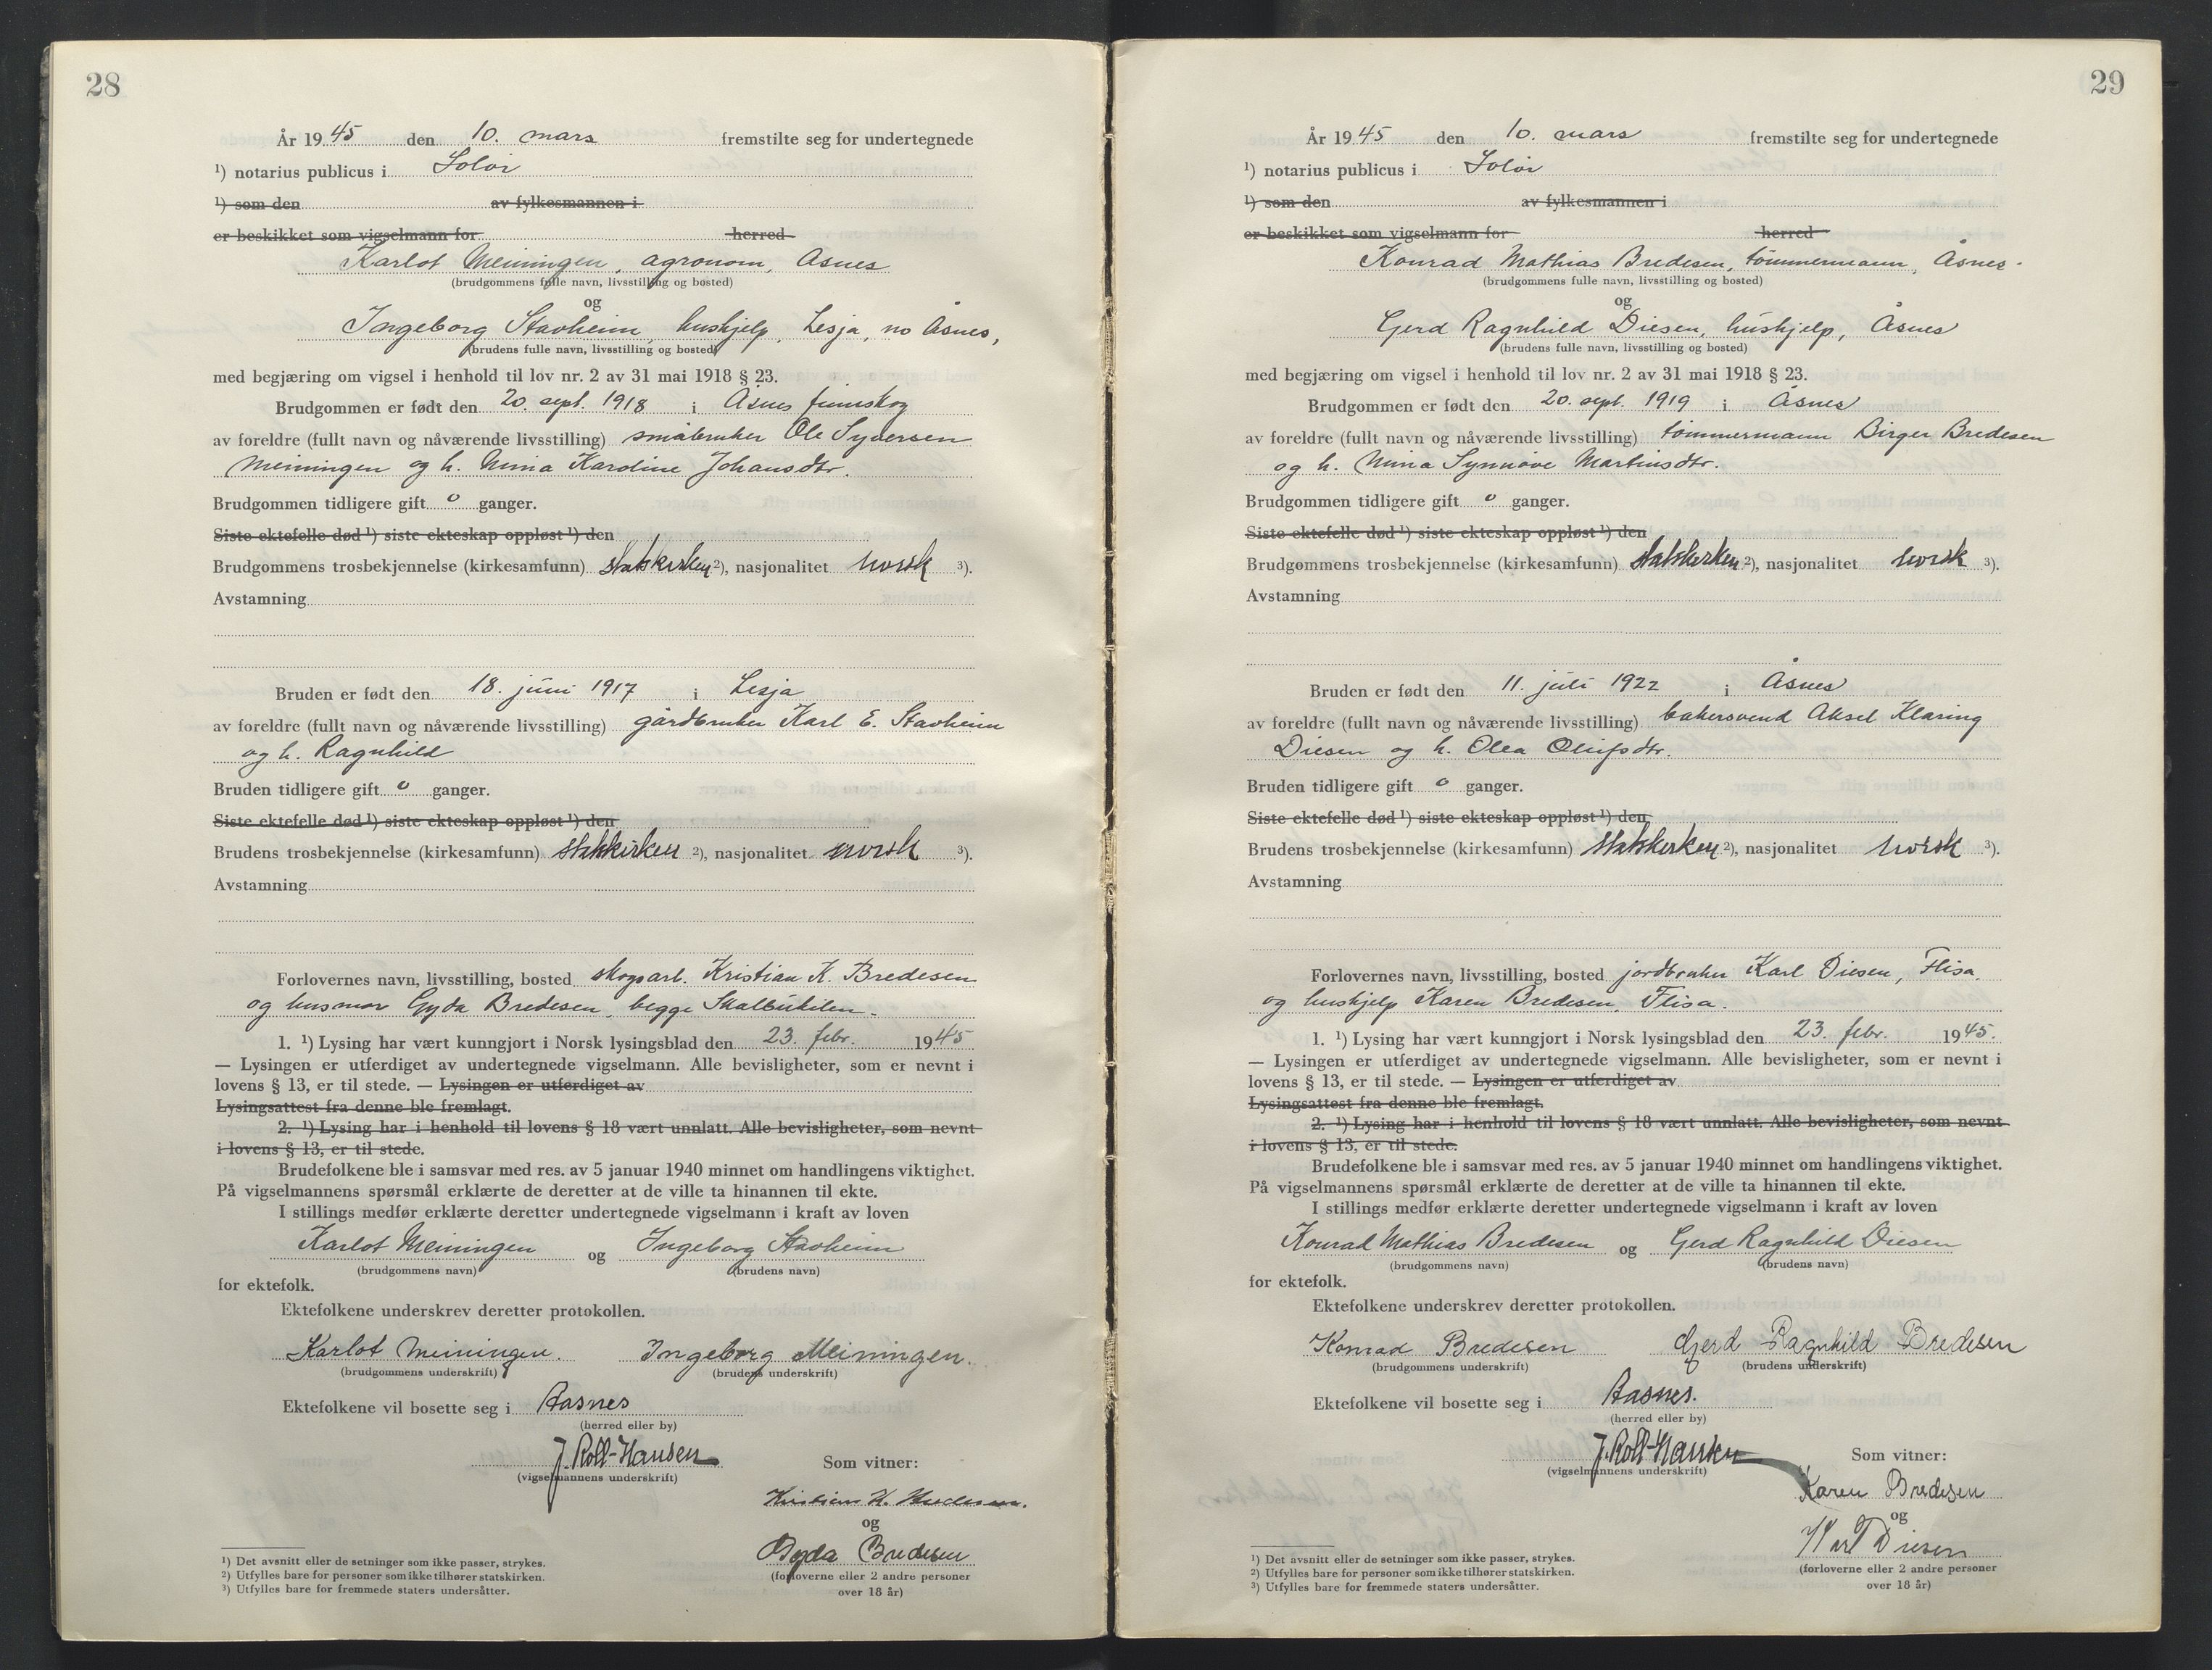 28
År 1945 den 10. mars fremstilte seg for undertegnede
¹) notarius publicus i Solør
¹) som den av fylkesmannen i
er beskikket som vigselmann for herred
Karlot Meiningen, agronom, Åsnes
(brudgommens fulle navn, livsstilling og bosted)
og
Ingeborg Stavheim, hushjelp, Lesja, no Åsnes,
(brudens fulle navn, livsstilling og bosted)
med begjæring om vigsel i henhold til lov nr. 2 av 31 mai 1918 § 23.
Brudgommen er født den 20. sept. 1918 i Åsnes finnskog
av foreldre (fullt navn og nåværende livsstilling) småbruker Ole Syversen
Meiningen og h. Mina Karoline Johansdtr.
Brudgommen tidligere gift 0 ganger.
Siste ektefelle død ¹) siste ekteskap oppløst ¹) den
Brudgommens trosbekjennelse (kirkesamfunn) statskirken ²), nasjonalitet norsk ³).
Avstamning
Bruden er født den 18. juni 1917 i Lesja
av foreldre (fullt navn og nåværende livsstilling) gårdbruker Karl E. Stavheim
og h. Ragnhild
Bruden tidligere gift 0 ganger.
Siste ektefelle død ¹) siste ekteskap oppløst ¹) den
Brudens trosbekjennelse (kirkesamfunn) statskirken ²), nasjonalitet norsk ³).
Avstamning
Forlovernes navn, livsstilling, bosted skogsarb. Kristian K. Bredesen
og husmor Gyda Bredesen, begge Skalbukilen.
1. ¹) Lysing har vært kunngjort i Norsk lysingsblad den 23. febr. 1945
— Lysingen er utferdiget av undertegnede vigselmann. Alle bevisligheter, som er nevnt i
lovens § 13, er til stede. — Lysingen er utferdiget av
Lysingsattest fra denne ble fremlagt.
2. ¹) Lysing har i henhold til lovens § 18 vært unnlatt. Alle bevisligheter, som nevnt
i lovens § 13, er til stede.
Brudefolkene ble i samsvar med res. av 5 januar 1940 minnet om handlingens viktighet.
På vigselmannens spørsmål erklærte de deretter at de ville ta hinannen til ekte.
I stillings medfør erklærte deretter undertegnede vigselmann i kraft av loven
Karlot Meiningen og Ingeborg Stavheim
(brudgommens navn) (brudens navn)
for ektefolk.
Ektefolkene underskrev deretter protokollen.
Karlot Meiningen. Ingeborg Meiningen.
(brudgommens underskrift) (brudens underskrift)
Ektefolkene vil bosette seg i Aasnes
(herred eller by)
J. Roll-Hansen
(vigselmannens underskrift)
Som vitner:
Kristian K. Bredesen.
og
Gyda Bredesen
(forloverne eller 2 andre personer
over 18 år)
¹) Det avsnitt eller de setninger som ikke passer, strykes.
²) Utfylles bare for personer som ikke tilhører statskirken.
³) Utfylles bare for fremmede staters undersåtter.
29
År 1945 den 10. mars fremstilte seg for undertegnede
¹) notarius publicus i Solør
¹) som den av fylkesmannen i
er beskikket som vigselmann for herred
Konrad Mathias Bredesen, tømmermann, Åsnes.
(brudgommens fulle navn, livsstilling og bosted)
og
Gerd Ragnhild Diesen, hushjelp, Åsnes
(brudens fulle navn, livsstilling og bosted)
med begjæring om vigsel i henhold til lov nr. 2 av 31 mai 1918 § 23.
Brudgommen er født den 20. sept. 1919 i Åsnes
av foreldre (fullt navn og nåværende livsstilling) tømmermann Birger Bredesen
og h. Mina Synnøve Martinsdtr.
Brudgommen tidligere gift 0 ganger.
Siste ektefelle død ¹) siste ekteskap oppløst ¹) den
Brudgommens trosbekjennelse (kirkesamfunn) statskirken ²), nasjonalitet norsk ³).
Avstamning
Bruden er født den 11. juli 1922 i Åsnes
av foreldre (fullt navn og nåværende livsstilling) bakersvend Aksel Klaring
Diesen og h. Olea Olufsdtr.
Bruden tidligere gift 0 ganger.
Siste ektefelle død ¹) siste ekteskap oppløst ¹) den
Brudens trosbekjennelse (kirkesamfunn) statskirken ²), nasjonalitet norsk ³).
Avstamning
Forlovernes navn, livsstilling, bosted jordbruker Karl Diesen, Flisa.
og hushjelp Karen Bredesen, Flisa.
1. ¹) Lysing har vært kunngjort i Norsk lysingsblad den 23. febr. 1945.
— Lysingen er utferdiget av undertegnede vigselmann. Alle bevisligheter, som er nevnt i
lovens § 13, er til stede. — Lysingen er utferdiget av
Lysingsattest fra denne ble fremlagt.
2. ¹) Lysing har i henhold til lovens § 18 vært unnlatt. Alle bevisligheter, som nevnt
i lovens § 13, er til stede.
Brudefolkene ble i samsvar med res. av 5 januar 1940 minnet om handlingens viktighet.
På vigselmannens spørsmål erklærte de deretter at de ville ta hinannen til ekte.
I stillings medfør erklærte deretter undertegnede vigselmann i kraft av loven
Konrad Mathias Bredesen og Gerd Ragnhild Diesen
(brudgommens navn) (brudens navn)
for ektefolk.
Ektefolkene underskrev deretter protokollen.
Konrad Bredesen Gerd Ragnhild Bredesen
(brudgommens underskrift) (brudens underskrift)
Ektefolkene vil bosette seg i Aasnes.
(herred eller by)
J. Roll-Hansen
(vigselmannens underskrift)
Som vitner:
Karen Bredesen
og
Karl Diesen
(forloverne eller 2 andre personer
over 18 år)
¹) Det avsnitt eller de setninger som ikke passer, strykes.
²) Utfylles bare for personer som ikke tilhører statskirken.
³) Utfylles bare for fremmede staters undersåtter.